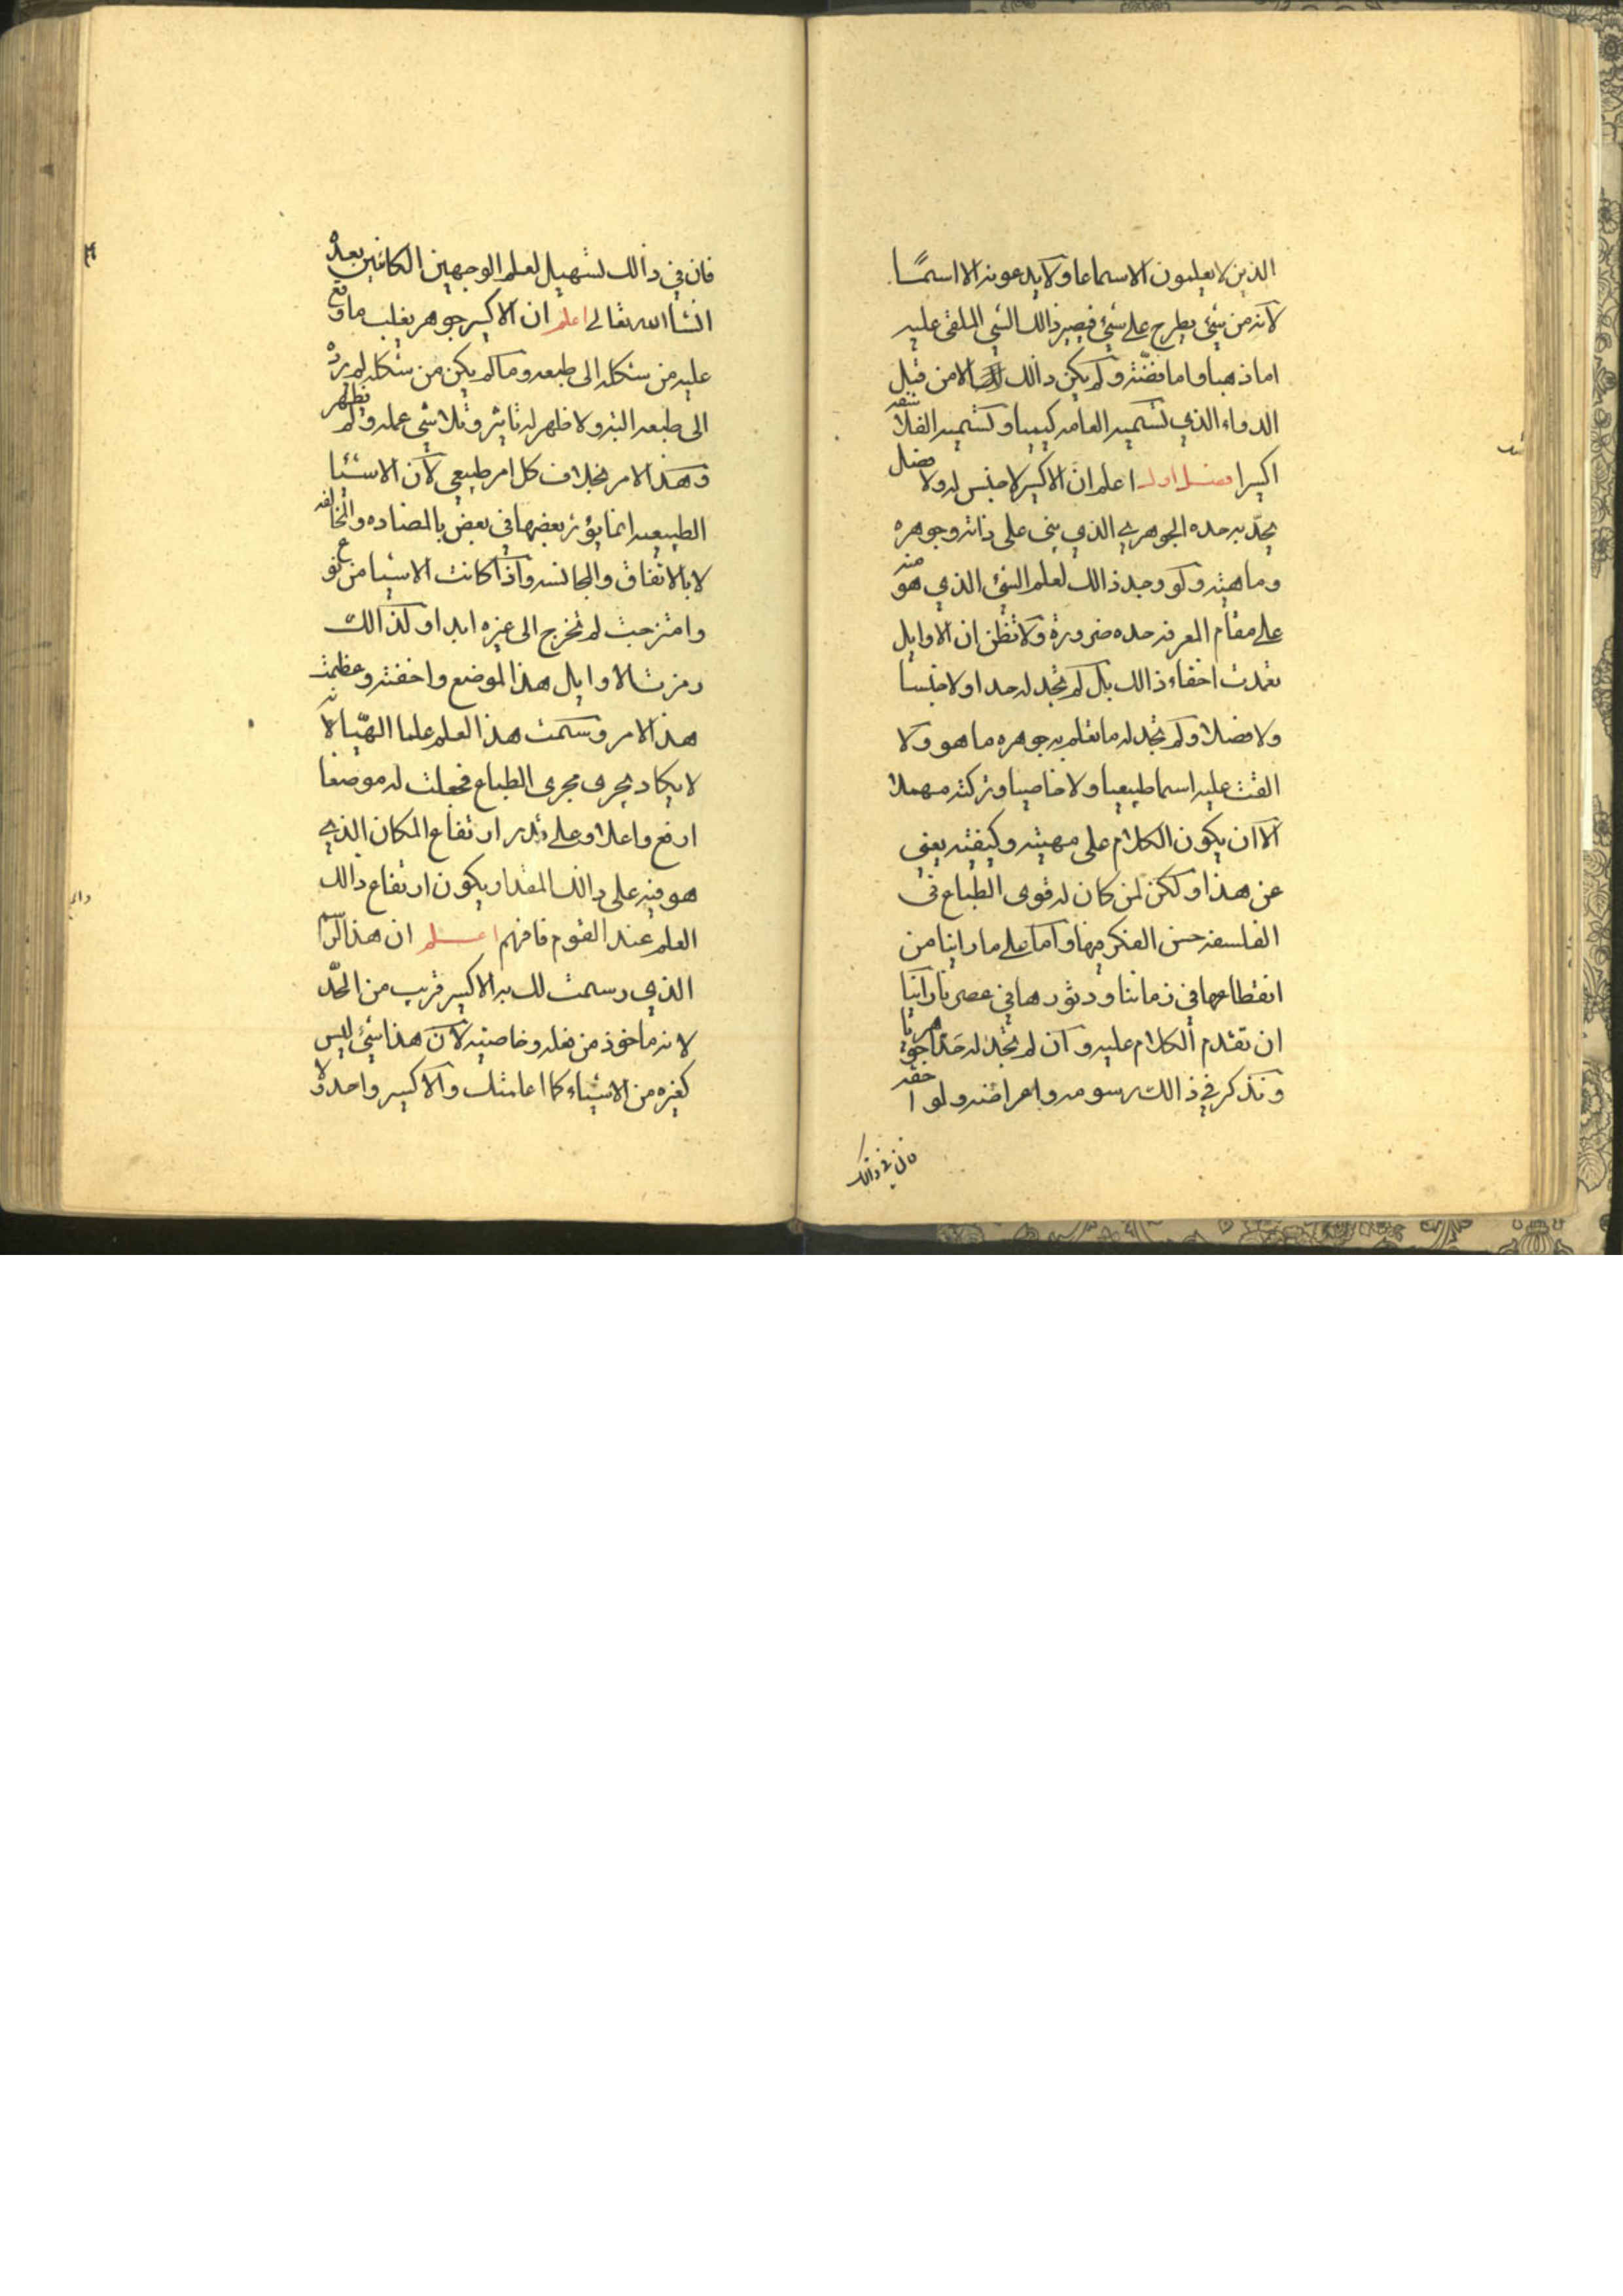 الذين لا يعلمون الاسماعا ولا يدعونه الا اسمًا
لانه من شيء يطرح على شيء فيصير ذالك الشي الملقى عليه
اما ذهبا واما فضّة ولم يكن ذالك الا من قبل
الدواء الذي تسميه العامه كيميا وتسميه الفلاسفه
اكسيرا فصل اول اعلم ان الاكسير لا جنس له ولا فصل
يحدّ به حده الجوهري الذي بنى على ذاته وجوهره
وماهيته ولو وجد ذالك لعلم الشيء الذي هو منه
على مقام المعرفه حده ضرورة ولا تظن ان الاوايل
تعمدت اخفاء ذالك بل لم تجد له حدا ولا جنسا
ولا فصلا ولم تجد له ما تعلم به جوهره ما هو ولا
القت عليه اسما طبيعيا ولا خاصيا وتركته مهملا
الا ان يكون الكلام على مهيته وكيفيته يغنى
عن هذا ولكن لمن كان له قوى الطباع في
الفلسفه حسن الفكر فيها واما على ما راينا من
انقطاعها في زماننا ودثورها في عصرنا راينا
ان نقدم الكلام عليه وان لم نجد له حدا جوهريا
ونذكر في ذالك رسومه واعراضه ولواحقه
فان في ذالك
فان في ذالك تسهيل لعلم الوجهين الكائنين بعده
انشا الله تعالى اعلم ان الاكسير جوهر يغلب ما وقع
عليه من شكله الى طبعه وما لم يكن من شكله لم يرده
الى طبعه البته ولا ظهر له تاثير وتلاشى عمله ولم يظهر
وهذا الامر بخلاف كل امر طبيعي لان الاشيا
الطبيعيه انما يؤثر بعضها في بعض بالمضاده والمخالفه
لا بالاتفاق والمجانسه واذا كانت الاشيا من نوع
وامتزجت لم تخرج الى غيره ابدا ولذالك
رمزت الاوايل هذا الموضع واخفته وعظمت
هذا الامر وسمت هذا العلم علما الهيّا لانه
لا يكاد يجرى مجرى الطباع فجعلت له موضعا
ارفع واعلا وعلى قدر ارتفاع المكان الذي
هو فيه على ذالك المقدار يكون ارتفاع ذالك
العلم عند القوم فافهم اعلم ان هذا الرسم
الذي رسمت لك به الاكسير قريب من الحدّ
لانه ماخوذ من فعله وخاصيته لان هذا شيء ليس
كغيره من الاشياء كما اعلمتك والاكسير واحد ولا